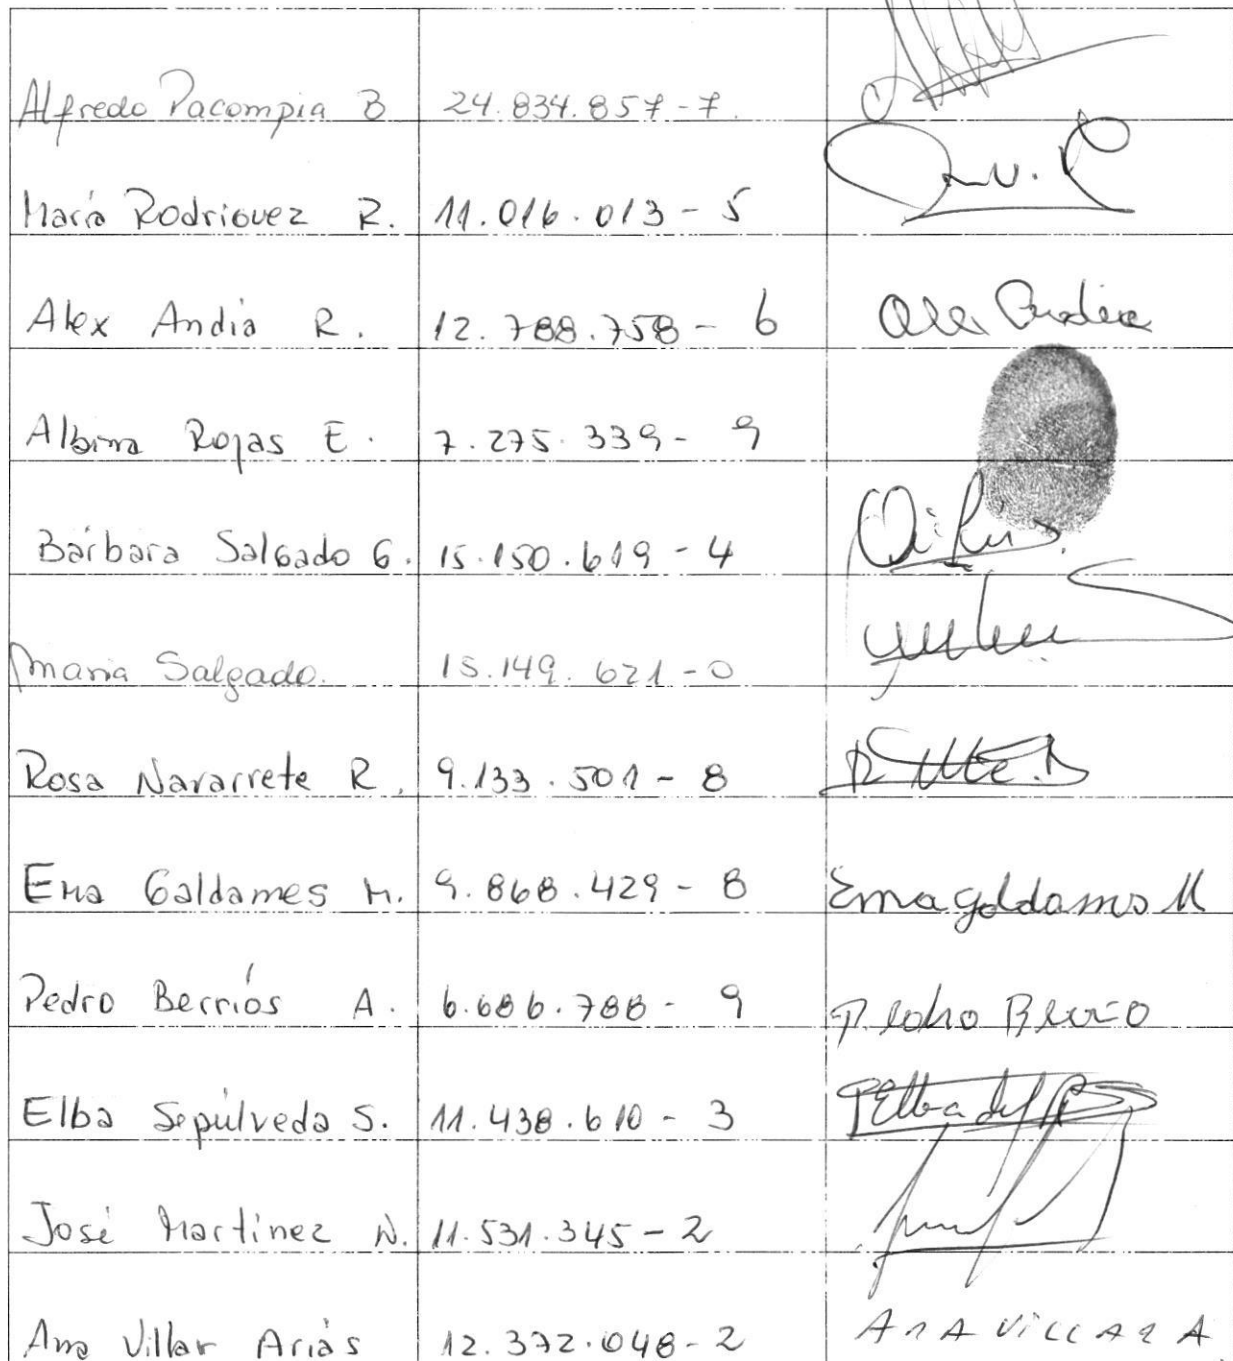 Alfredo Pacompia B 24.834.857-7
María Rodriguez R. 11.016.013-5
Alex Andia R. 12.788.758-6
Albina Rojas E. 7.275.339-9
Bárbara Salgado G. 15.150.619-4
Maria Salgado. 15.149.621-0
Rosa Navarrete R. 9.133.501-8
Ema Galdames M. 9.868.429-8 Ema galdames M
Pedro Berríos A. 6.686.788-9 Pedro Berrio
Elba Sepúlveda S. 11.438.610-3
José Martínez N. 11.531.345-2
Ana Villar Arias 12.372.048-2 ANA VILLAR A.